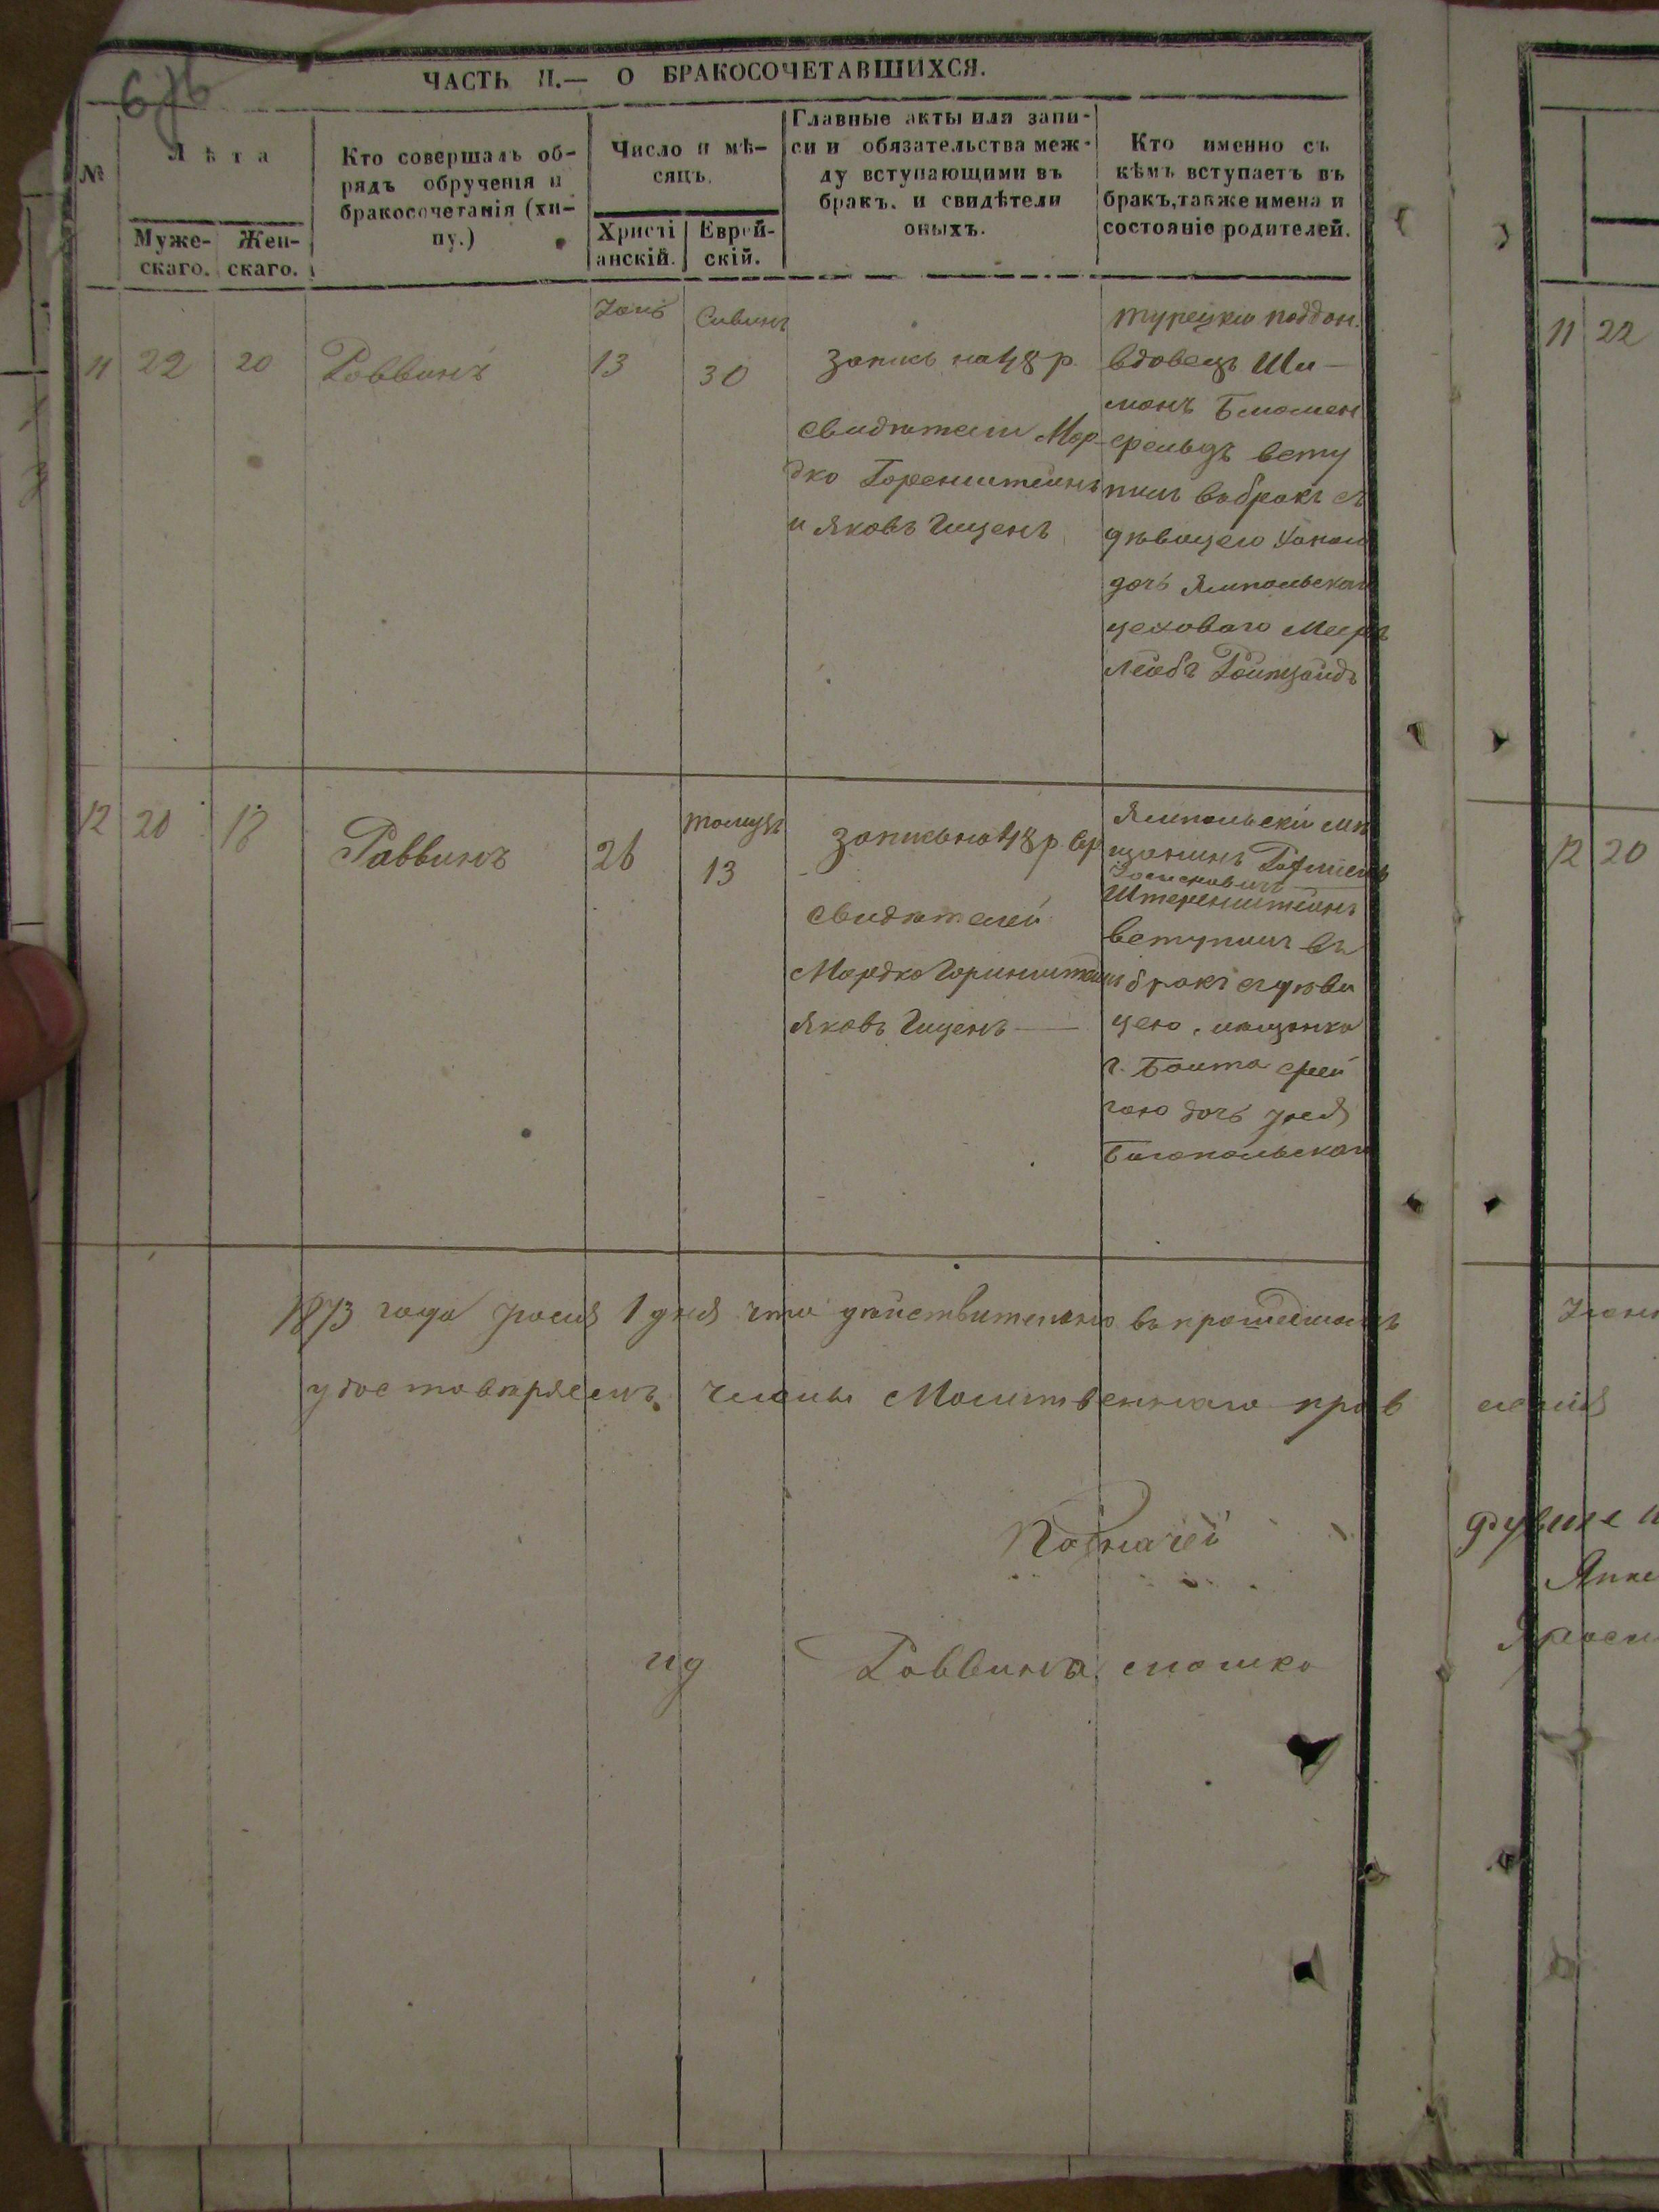 ЧАСТЬ II.— О БРАКОСОЧЕТАВШИХСЯ.
№
Лѣта
Муже-
скаго.
Жен-
скаго.
Кто совершалъ об-
рядъ обрученія и
бракосочетанія (хи-
пу.)
Число и мѣ-
сяцъ.
Христі
анскій.
Еврей-
скій.
Главные акты или запи-
си и обязательства меж-
ду вступающими въ
бракъ. и свидѣтели
оныхъ.
Кто именно съ
кѣмъ вступаетъ въ
бракъ, также имена и
состояніе родителей.
11
22
20
Раввинъ
13
Сивинъ
30
запись на 48 р.
свидѣтели Мор-
дко Горенштейнъ
и Яковъ Гиценъ
турецки поддан.
вдовецъ Ши-
монъ Блюмен
фельдъ всту
пилъ въ бракъ съ
дѣвицею
дочь Ямпольскаго
цеховаго Мееръ
Лейбъ
12
20
18
Раввинъ
26
Тамузъ
13
запись на 48 р. ср
свидѣтелей
Мордко Горинштейнъ
Яковъ Гиценъ
Ямпольскій мѣ
щанинъ
Штеренштейнъ
вступилъ въ
бракъ съ дѣви
цею, мѣщанка
г. Балта Фей
гою дочь
Богопольскаго
1873 года 1 дня что дѣйствительно въ прошедшемъ
удостовѣряемъ члены Молитвеннаго прав
ленія
Казначей
ид
Раввина
11 22
12 20